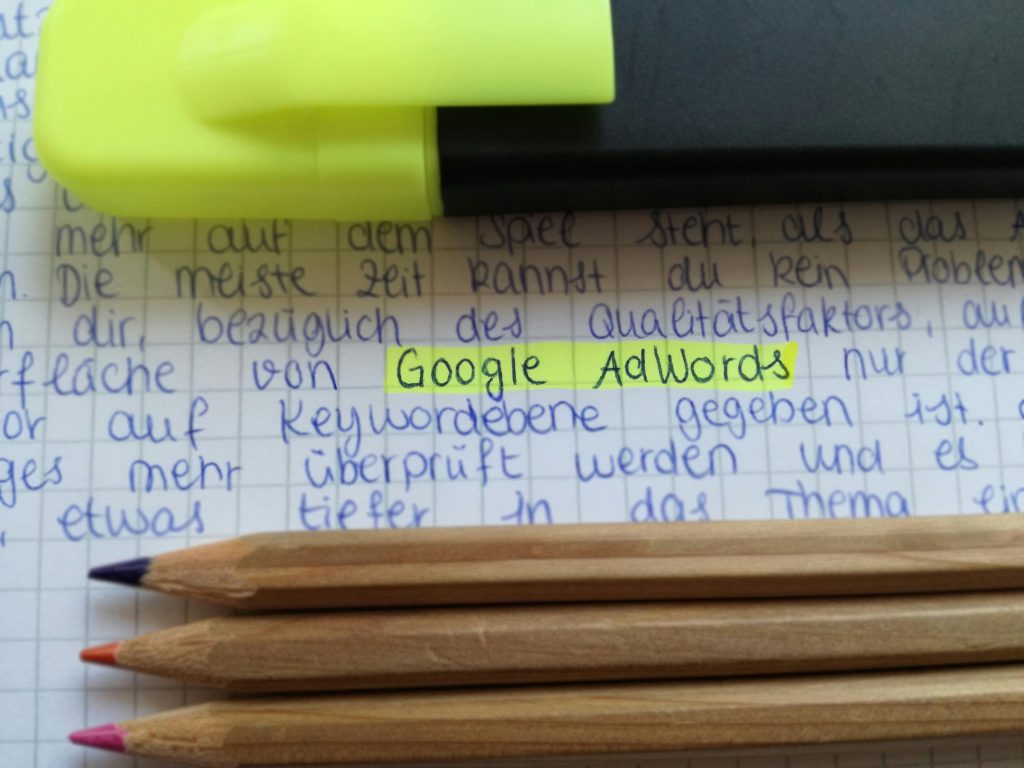 mehr auf dem Spiel steht, als das
Die meiste Zeit kannst du kein Problem
dir, bezüglich des Qualitätsfaktors, auf
fläche von Google AdWords nur der
or auf Keywordebene gegeben ist.
ges mehr überprüft werden und es
etwas tiefer in das Thema ein